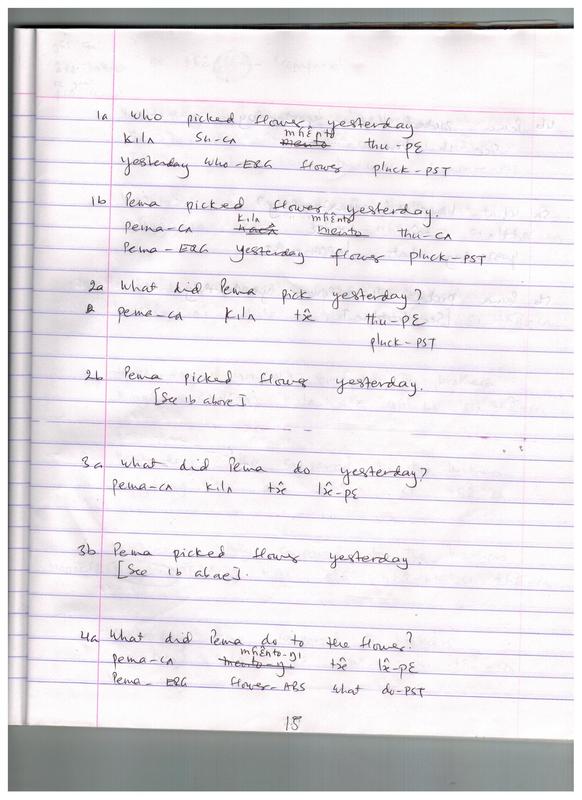 1a Who picked flower yesterday
mhɛ̃nto
kilʌ su-cʌ mento thu-pɛ
yesterday who-ERG flower pluck-PST
1b Pema picked flower yesterday.
kilʌ mhɛ̃nto
pema-cʌ mento thu-cʌ
Pema-ERG yesterday flower pluck-PST
2a What did Pema pick yesterday?
pema-cʌ kilʌ thu-pɛ
pluck-PST
2b Pema picked flower yesterday.
[See 1b above]
3a What did Pema do yesterday?
pema-cʌ kilʌ
3b Pema picked flower yesterday
[See 1b above].
4a What did Pema do to the flower?
mhɛ̃nto-yi
pema-cʌ mento-yi
Pema-ERG flower-ABS what do-PST
15